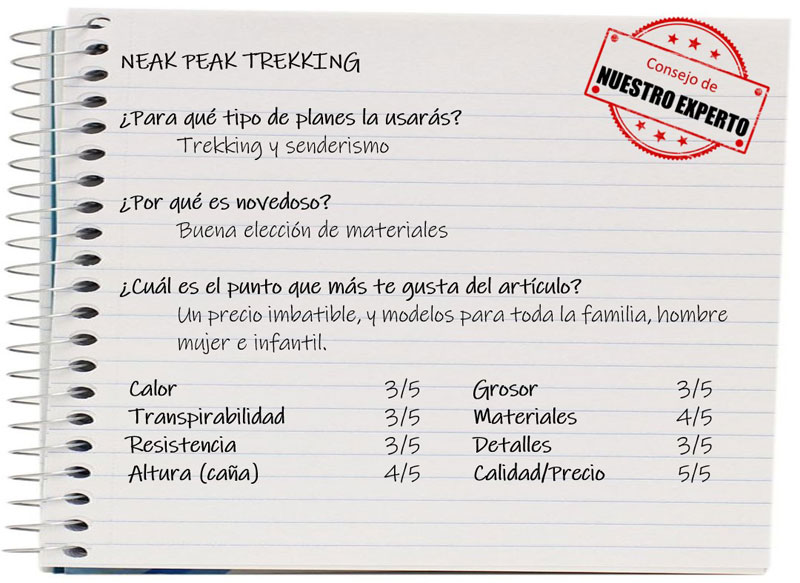 NEAK PEAK TREKKING
Consejo de
NUESTRO EXPERTO
¿Para qué tipo de planes la usarás?
Trekking y senderismo
¿Por qué es novedoso?
Buena elección de materiales
¿Cuál es el punto que más te gusta del artículo?
Un precio imbatible, y modelos para toda la familia, hombre
mujer e infantil.
Calor 3/5 Grosor 3/5
Transpirabilidad 3/5 Materiales 4/5
Resistencia 3/5 Detalles 3/5
Altura (caña) 4/5 Calidad/Precio 5/5